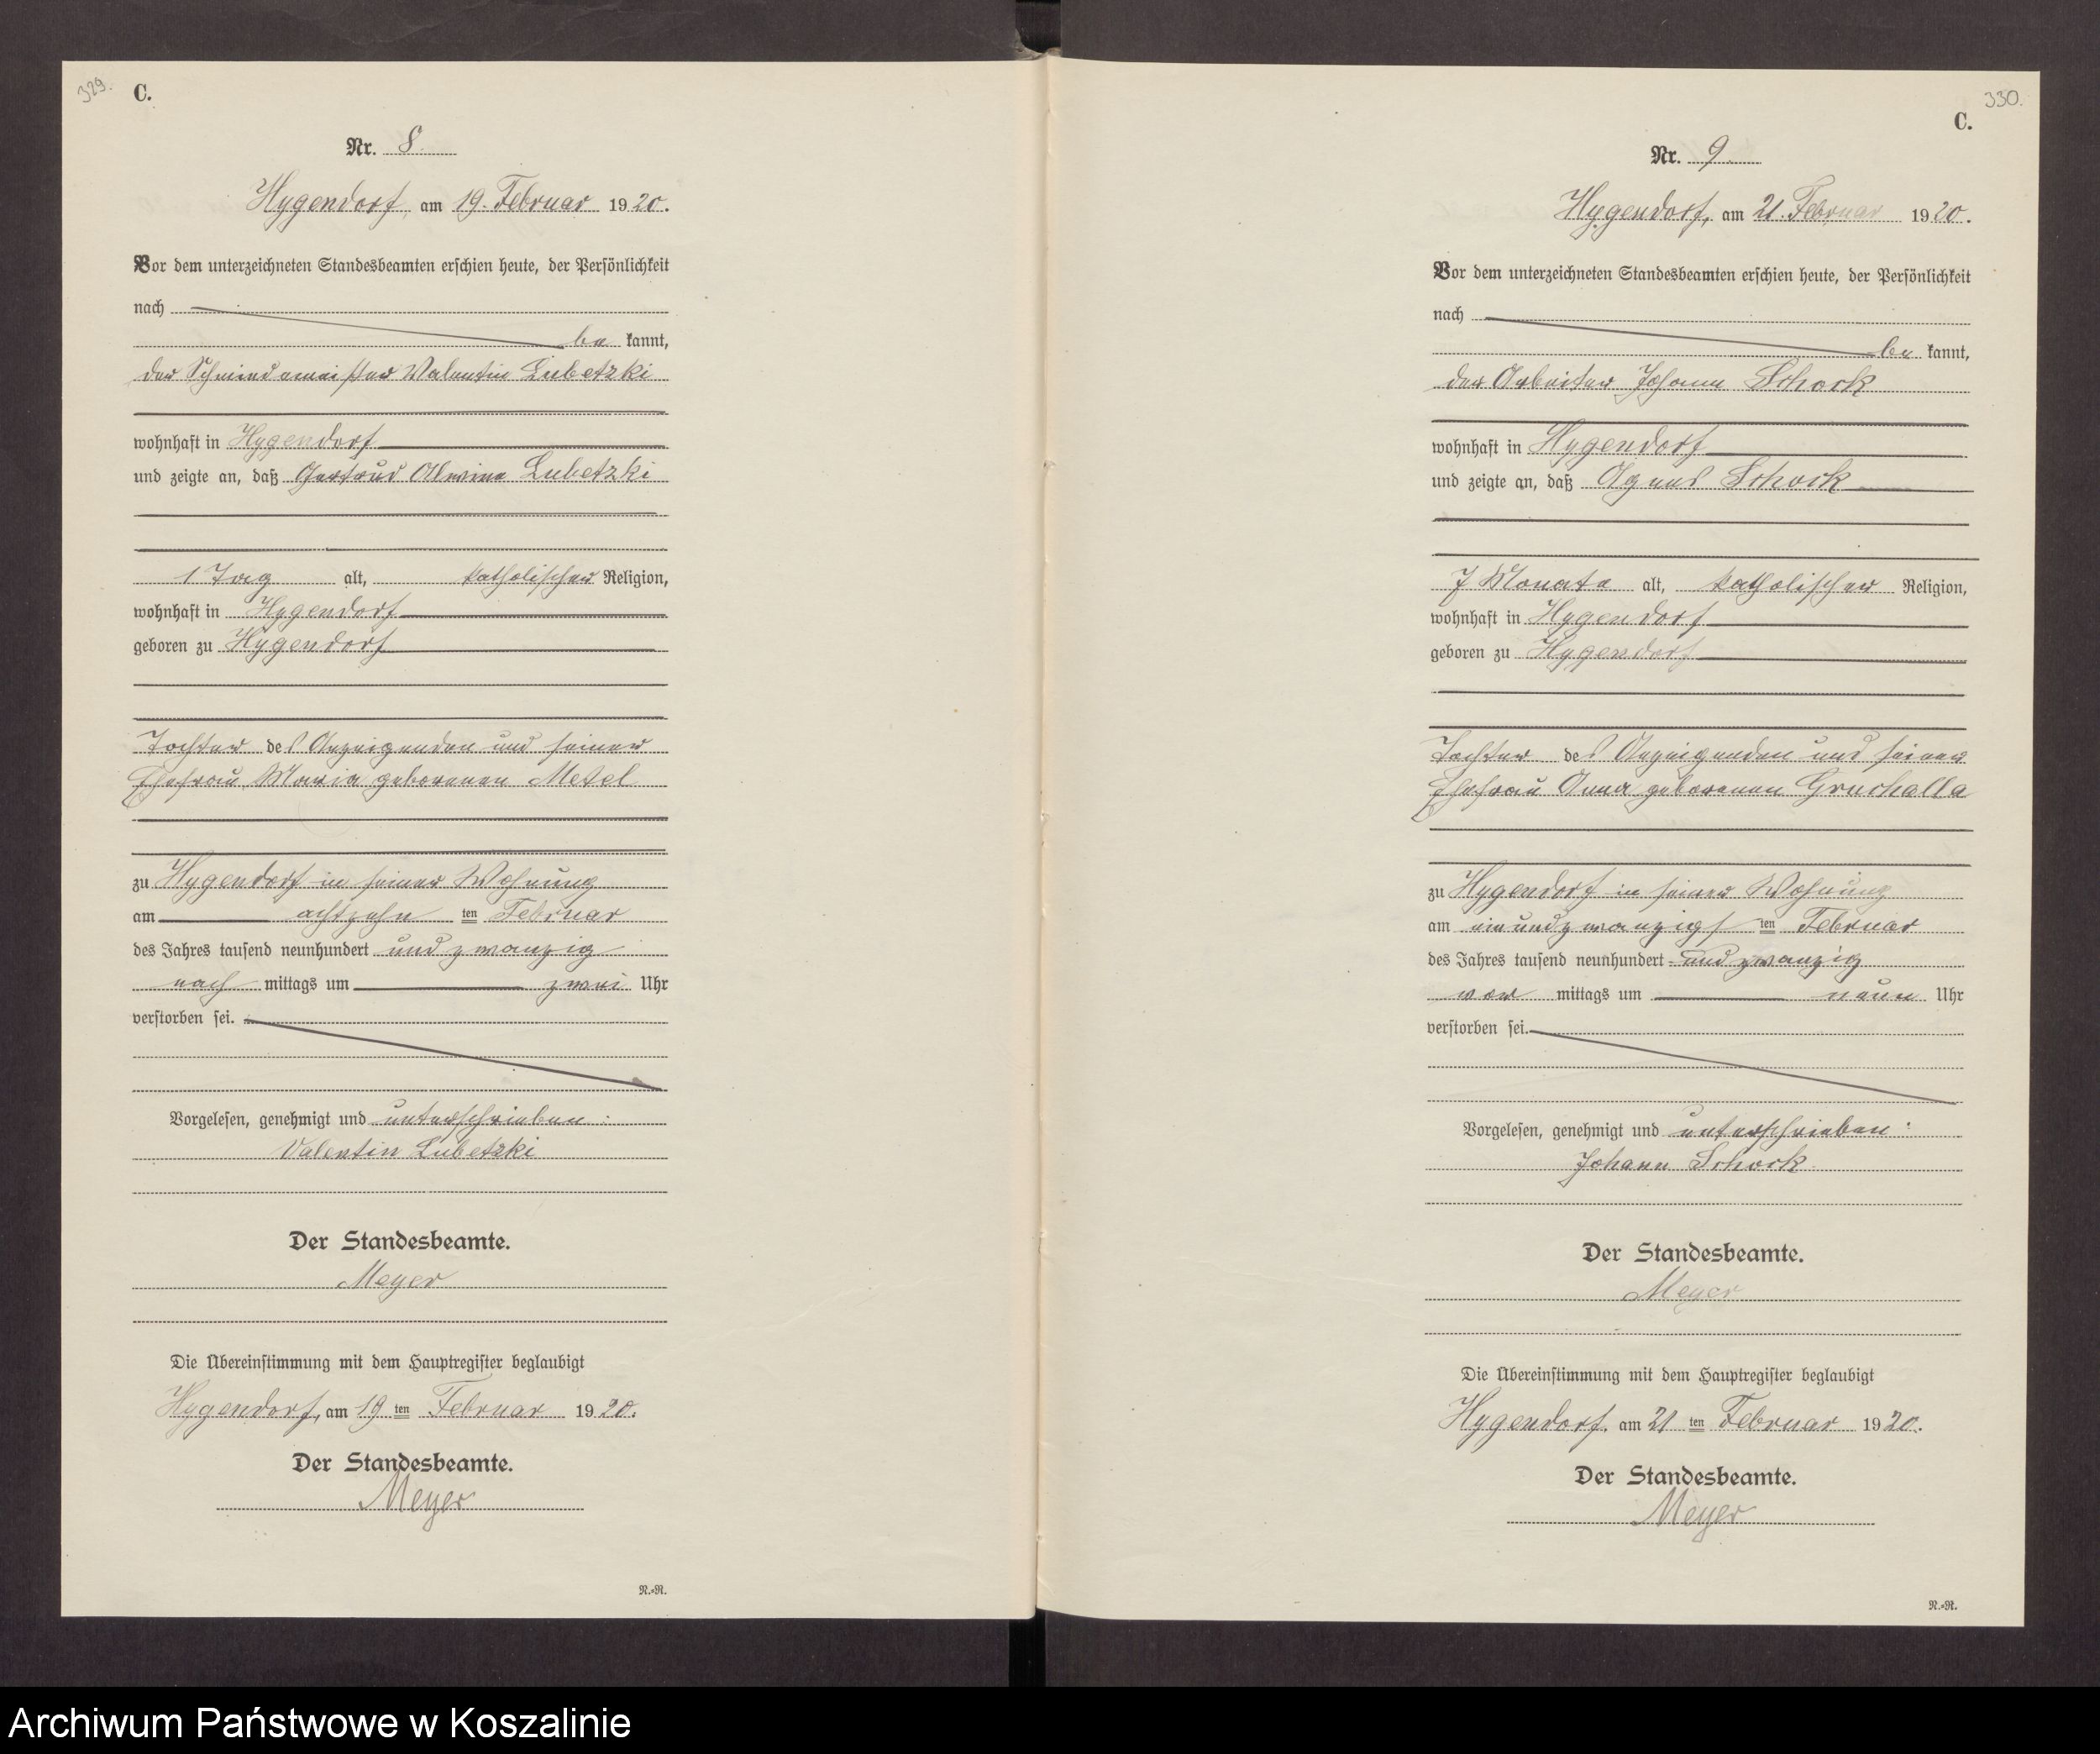 329.
C.
Nr. 8.
Hygendorf am 19. Februar 1920.
Vor dem unterzeichneten Standesbeamten erschien heute, der Persönlichkeit
nach
be kannt,
der Schmiedemeister Valentin Lubetzki
wohnhaft in Hygendorf
und zeigte an, daß Gertrud Alwine Lubetzki
1 Tag alt, katholischer Religion,
wohnhaft in Hygendorf
geboren zu Hygendorf
Tochter des Anzeigenden und seiner
Ehefrau Maria geborenen Metel
zu Hygendorf in seiner Wohnung
am achtzehn ten Februar
des Jahres tausend neunhundert und zwanzig
nach mittags um zwei Uhr
verstorben sei.
Vorgelesen, genehmigt und unterschrieben:
Valentin Lubetzki
Der Standesbeamte.
Meyer
Die Übereinstimmung mit dem Hauptregister beglaubigt
Hygendorf, am 19 ten Februar 1920.
Der Standesbeamte.
Meyer
N.=R.
330.
C.
Nr. 9
Hygendorf, am 21. Februar 1920.
Vor dem unterzeichneten Standesbeamten erschien heute, der Persönlichkeit
nach
be kannt,
der Arbeiter Johann Schock
wohnhaft in Hygendorf
und zeigte an, daß Agnes Schock
7 Monate alt, katholischer Religion,
wohnhaft in Hygendorf
geboren zu Hygendorf
Tochter des Anzeigenden und seiner
Ehefrau Anna geborenen Gruchalla
zu Hygendorf in seiner Wohnung
am einundzwanzigs ten Februar
des Jahres tausend neunhundert und zwanzig
vor mittags um neun Uhr
verstorben sei.
Vorgelesen, genehmigt und unterschrieben:
Johann Schock
Der Standesbeamte.
Meyer
Die Übereinstimmung mit dem Hauptregister beglaubigt
Hygendorf, am 21 ten Februar 1920.
Der Standesbeamte.
Meyer
N.=R.
Archiwum Państwowe w Koszalinie